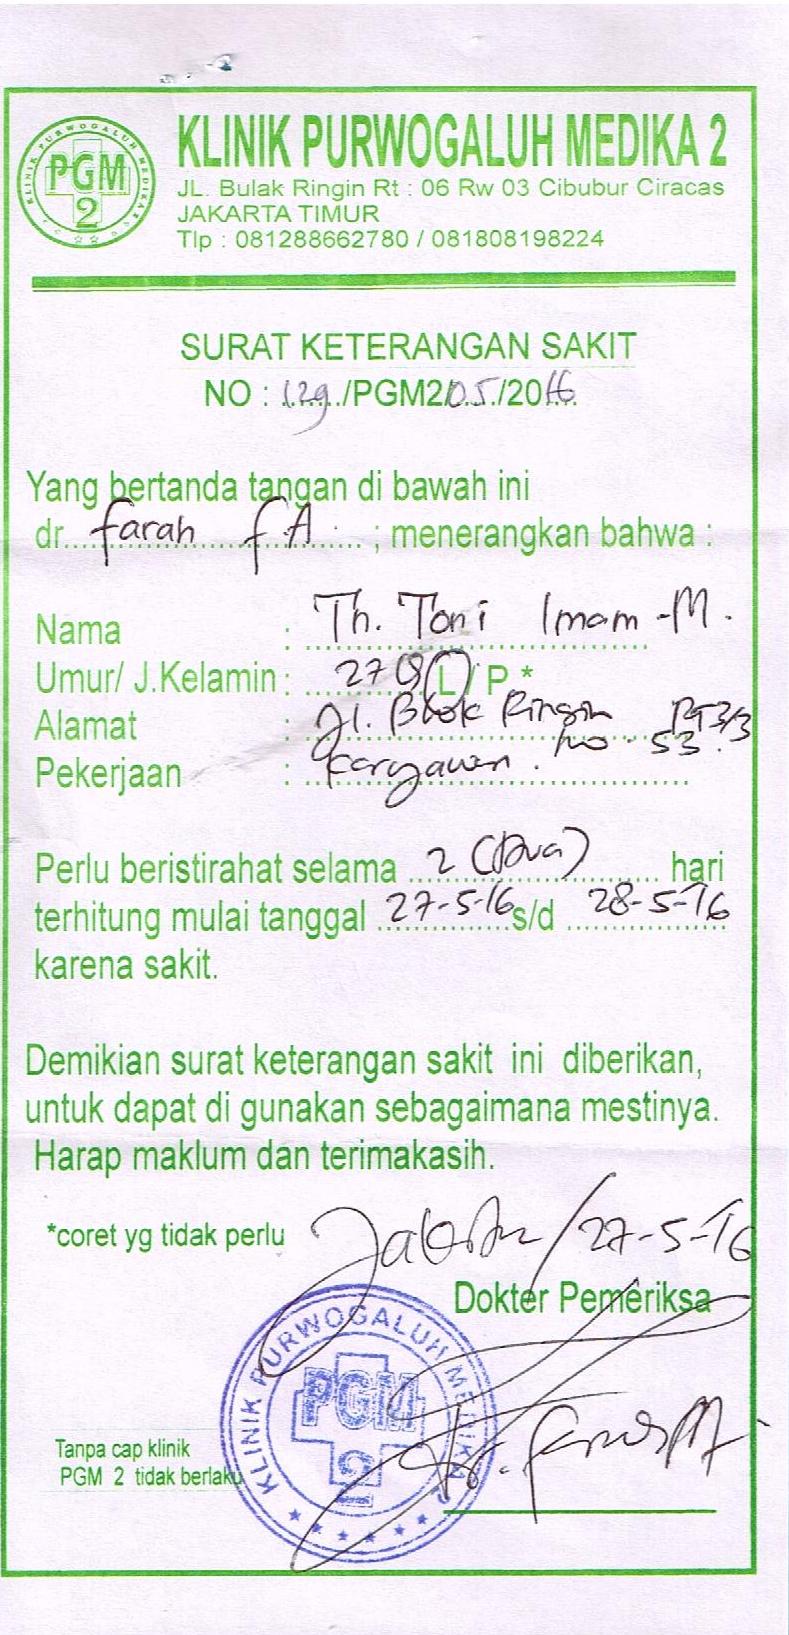 KLINIK PURWOGALUH MEDIKA 2
PGM
2
JL. Bulak Ringin Rt : 06 Rw 03 Cibubur Ciracas
JAKARTA TIMUR
Tlp : 081288662780 / 081808198224
SURAT KETERANGAN SAKIT
NO : 129/PGM2/05/2016
Yang bertanda tangan di bawah ini
dr. Farah F.A ; menerangkan bahwa :
Nama : Th. Toni Imam .M.
Umur/ J.Kelamin : 27 L/ P *
Alamat : Jl. Blok Ringin RT 3/3
no. 53.
Pekerjaan : Karyawan.
Perlu beristirahat selama 2 (Dua) hari
terhitung mulai tanggal 27-5-16 s/d 28-5-16
karena sakit.
Demikian surat keterangan sakit ini diberikan,
untuk dapat di gunakan sebagaimana mestinya.
Harap maklum dan terimakasih.
*coret yg tidak perlu
Jakarta/27-5-16
Dokter Pemeriksa
KLINIK PURWOGALUH MEDIKA
PGM
2
Tanpa cap klinik
PGM 2 tidak berlaku